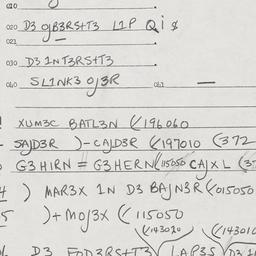 010
020 D3 OJB3RSHT3 L1P Q i $
021
030 D3 1NT3RSHT3
060 SL1NK3 OJ3R 061
XUM3C BATL3N (/196060
SAJD3R )-CAJD3R (/197010 (372
G3H1RN = G3HERN (/115050 CAJXL (3
4 ) MAR3X 1N D3 BAJN3R (/015050
5 )+MOJ3X (/ 115050
(/143020 (/143010
D3 LAP3S D3 1